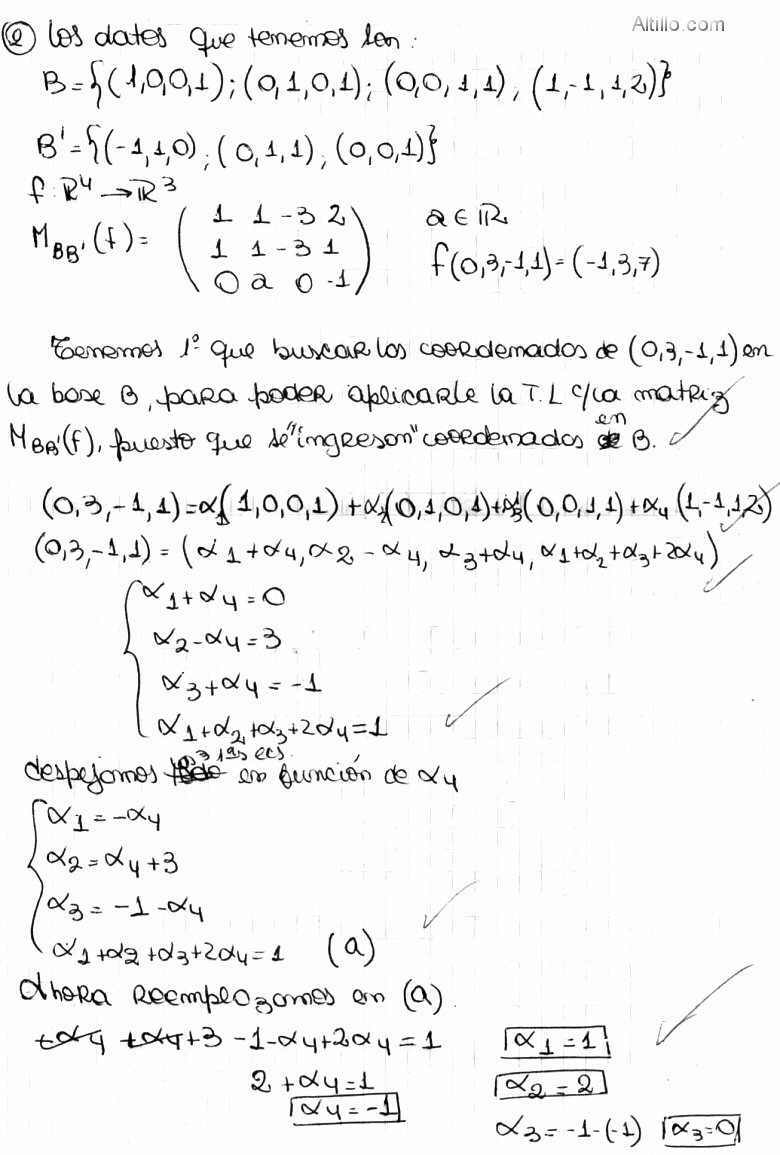 Altillo.com
② Los datos que tenemos son:
B={(1,0,0,1); (0,1,0,1); (0,0,1,1), (1,-1,1,2)}
B'={(-1,1,0), (0,1,1), (0,0,1)}
f: ℝ⁴→ℝ³
M_BB'(f) = ( 1 1 -3 2
1 1 -3 1
0 a 0 -1 )
a ∈ ℝ
f(0,3,-1,1)=(-1,3,7)
Tenemos 1º que buscar las coordenadas de (0,3,-1,1) en
la base B, para poder aplicarle la T.L c/la matriz
M_BB'(f), puesto que se "ingresan" coordenadas en B.
(0,3,-1,1)=α1(1,0,0,1)+α2(0,1,0,1)+α3(0,0,1,1)+α4(1,-1,1,2)
(0,3,-1,1) = (α1+α4, α2-α4, α3+α4, α1+α2+α3+2α4)
α1+α4=0
α2-α4=3
α3+α4=-1
α1+α2+α3+2α4=1
despejamos 3 1ªs ecs. en función de α4
α1=-α4
α2=α4+3
α3=-1-α4
α1+α2+α3+2α4=1 (a)
Ahora reemplazamos en (a)
-α4+α4+3-1-α4+2α4=1
α1=1
2+α4=1
α2=2
α4=-1
α3=-1-(-1) α3=0